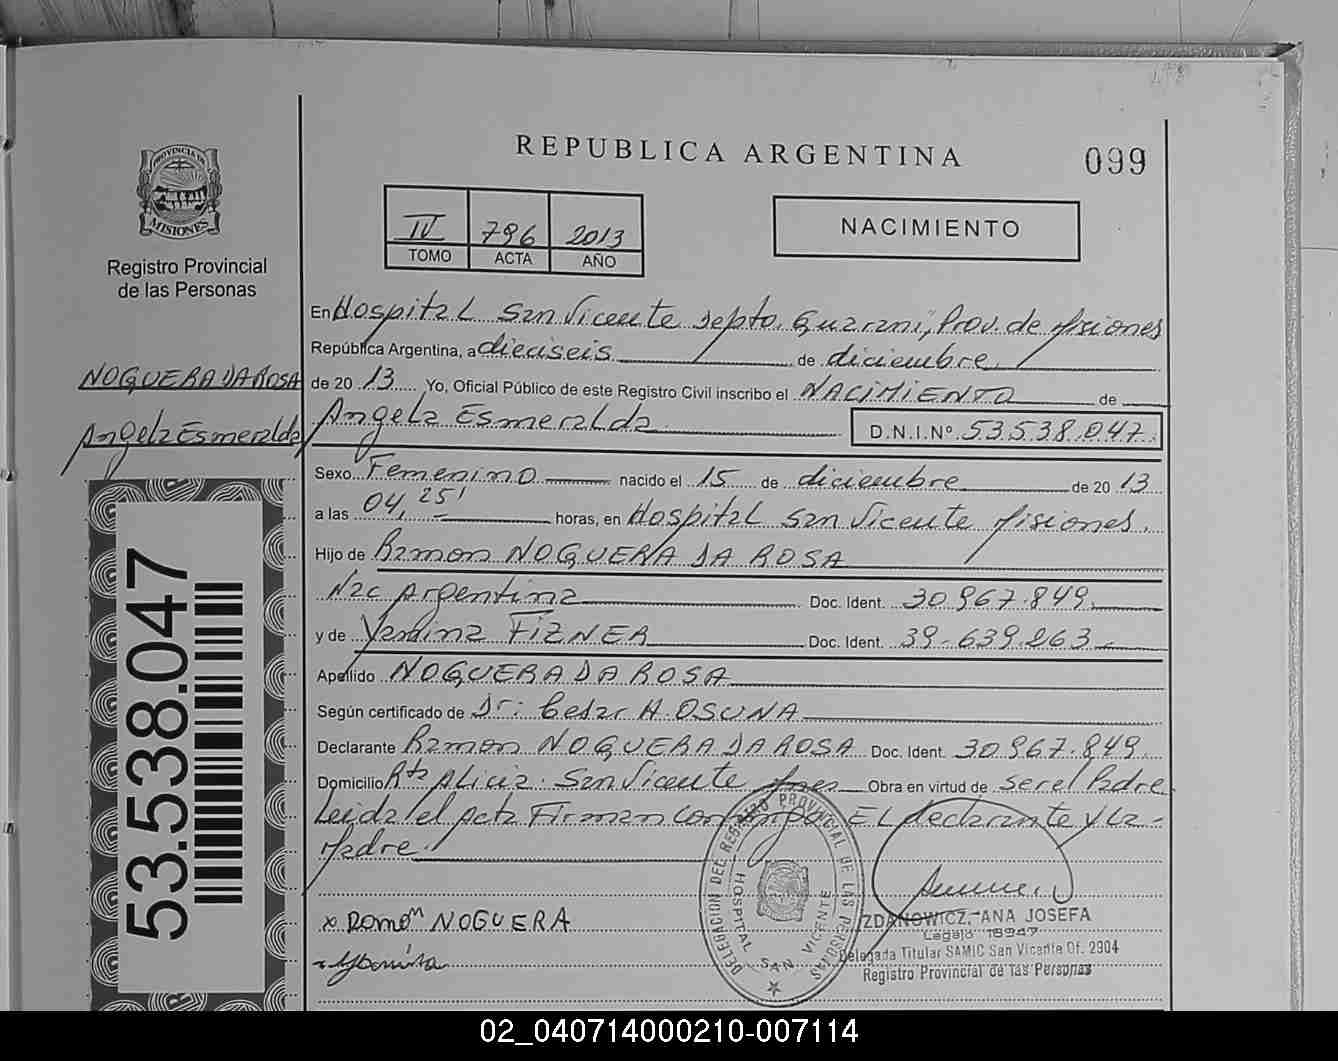 REPUBLICA ARGENTINA
099
PROVINCIA DE
MISIONES
Registro Provincial
de las Personas
IV 796 2013
TOMO ACTA AÑO
NACIMIENTO
En Hospital San Vicente Depto. Guarani, Prov. de Misiones
República Argentina, a dieciseis de diciembre
de 20 13 Yo, Oficial Público de este Registro Civil inscribo el NACIMIENTO de
Angela Esmeralda D.N.I.Nº 53.538.047
NOGUERA DA ROSA
Angela Esmeralda
Sexo Femenino nacido el 15 de diciembre de 20 13
a las 04,25' horas, en Hospital San Vicente Misiones.
Hijo de Ramon NOGUERA DA ROSA
Nac Argentina Doc. Ident. 30.967.849
y de Yanina FIZNER Doc. Ident. 39.639.263
Apellido NOGUERA DA ROSA
Según certificado de Dr: Cesar A. OSUNA
Declarante Ramon NOGUERA DA ROSA Doc. Ident. 30.967.849
Domicilio Rta Alicia. San Vicente Mnes Obra en virtud de ser el Padre
Leida el Acta Firman Conmigo EL declarante y La
Madre
53.538.047
x Ramon NOGUERA
Yanina
DELEGACION DEL REGISTRO PROVINCIAL DE LAS PERSONAS
HOSPITAL SAN VICENTE
ZDANOWICZ, ANA JOSEFA
Legajo 18947
Delegada Titular SAMIC San Vicente Of. 2904
Registro Provincial de las Personas
02_040714000210-007114